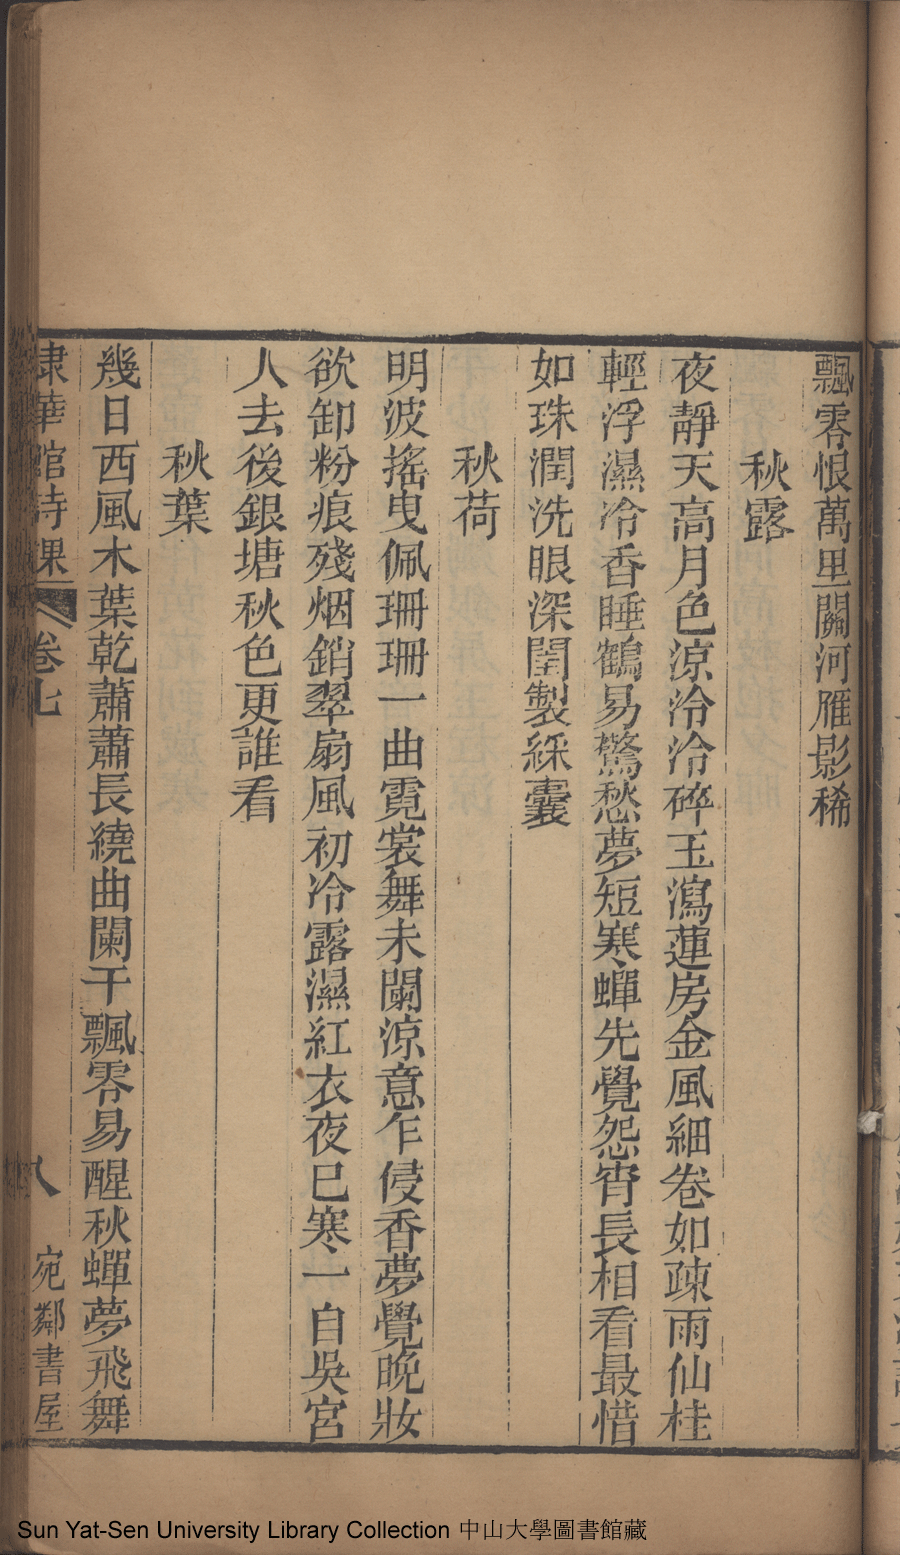 飄零恨萬里關河雁影稀
秋露
夜靜天高月色涼泠泠碎玉瀉蓮房金風細卷如疎雨仙桂
輕浮濕冷香睡鶴易驚愁夢短寒蟬先覺怨宵長相看最惜
如珠潤洗眼深閨製綵囊
秋荷
明波搖曳佩珊珊一曲霓裳舞未闌涼意乍侵香夢覺晚妝
欲卸粉痕殘烟銷翠扇風初冷露濕紅衣夜已寒一自吳宮
人去後銀塘秋色更誰看
秋葉
幾日西風木葉乾蕭蕭長繞曲闌干飄零易醒秋蟬夢飛舞
棣華館詩課 卷七 八 宛鄰書屋
Sun Yat-Sen University Library Collection 中山大學圖書館藏